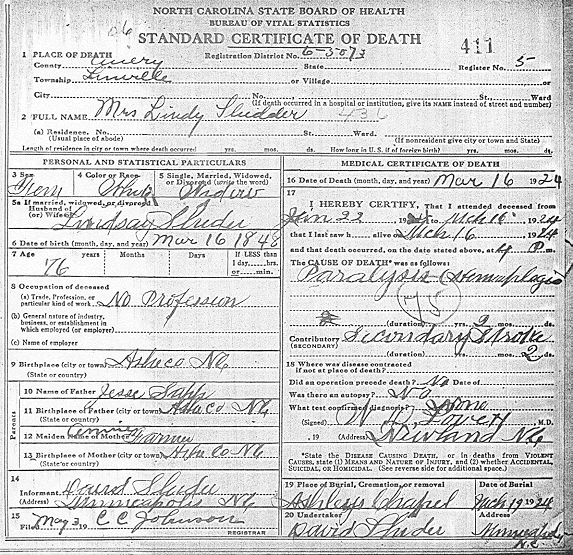 NORTH CAROLINA STATE BOARD OF HEALTH
BUREAU OF VITAL STATISTICS
STANDARD CERTIFICATE OF DEATH
411
1 PLACE OF DEATH
Registration District No. 6-5073
Register No. 5
County Avery State
Township Linville or Village or
City No. St. Ward
(If death occurred in a hospital or institution, give its NAME instead of street and number)
2 FULL NAME Mrs Lindy Sludder 436
(a) Residence. No. St. Ward.
(Usual place of abode) (If nonresident give city or town and State)
Length of residence in city or town where death occurred yrs. mos. ds. How long in U.S. if of foreign birth? yrs. mos. ds.
PERSONAL AND STATISTICAL PARTICULARS
3 Sex 4 Color or Race 5 Single, Married, Widowed, or Divorced (write the word)
Fem White Widow
5a If married, widowed, or divorced
Husband of
(or) Wife of Lindsay Sluder
6 Date of birth (month, day, and year) Mar 16 1848
7 Age Years Months Days If LESS than 1 day, hrs. or min.
76
8 Occupation of deceased
(a) Trade, Profession, or particular kind of work No Profession
(b) General nature of industry, business, or establishment in which employed (or employer)
(c) Name of employer
9 Birthplace (city or town) Ashe co. NC
(State or country)
Parents
10 Name of Father Jesse Sapp
11 Birthplace of Father (city or town) Ashe co. NC
(State or country)
12 Maiden Name of Mother
13 Birthplace of Mother (city or town) Ashe co NC
(State or country)
14 Informant David Sluder
(Address) Minneapolis NC
15 Filed May 3, 19 C C Johnson
REGISTRAR
MEDICAL CERTIFICATE OF DEATH
16 Date of Death (month, day, and year) Mar 16 1924
17 I HEREBY CERTIFY, That I attended deceased from
Jan 22 Mch 16 1924
that I last saw h alive on Mch 16 1924
and that death occurred, on the date stated above, at P m.
The CAUSE OF DEATH* was as follows:
Paralysis
75
(duration) yrs. 2 mos. ds.
Contributory Secondary Stroke
(SECONDARY)
(duration) yrs. mos. 2 ds.
18 Where was disease contracted
if not at place of death?
Did an operation precede death? No Date of
Was there an autopsy? No
What test confirmed diagnosis? None
(Signed) M.D.
, 19 (Address) Newland NC
*State the DISEASE CAUSING DEATH, or in deaths from VIOLENT CAUSES, state (1) MEANS AND NATURE OF INJURY, and (2) whether ACCIDENTAL, SUICIDAL, or HOMICIDAL. (See reverse side for additional space.)
19 Place of Burial, Cremation, or removal Date of Burial
Ashleys Chapel Mch 19 1924
20 Undertaker Address
David Sluder Minneapolis N.C.